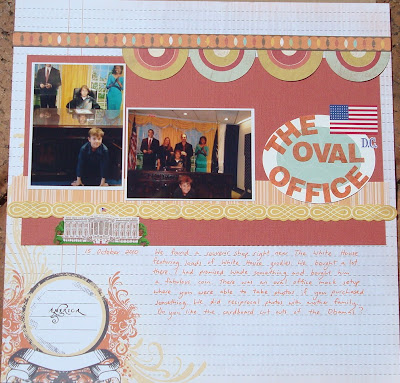 THE
OVAL
OFFICE
D.C.
15 October
We found a souvenir shop right near The White House
featuring loads of White House goodies. We bought a lot
there. I had promised Wade something and bought him
a fabulous coin. There was an oval office mock setup
where you were able to take photos if you purchased
something. We did reciprocal photos with another family.
Do you like the cardboard cut outs of the Obamas?
AMERICA